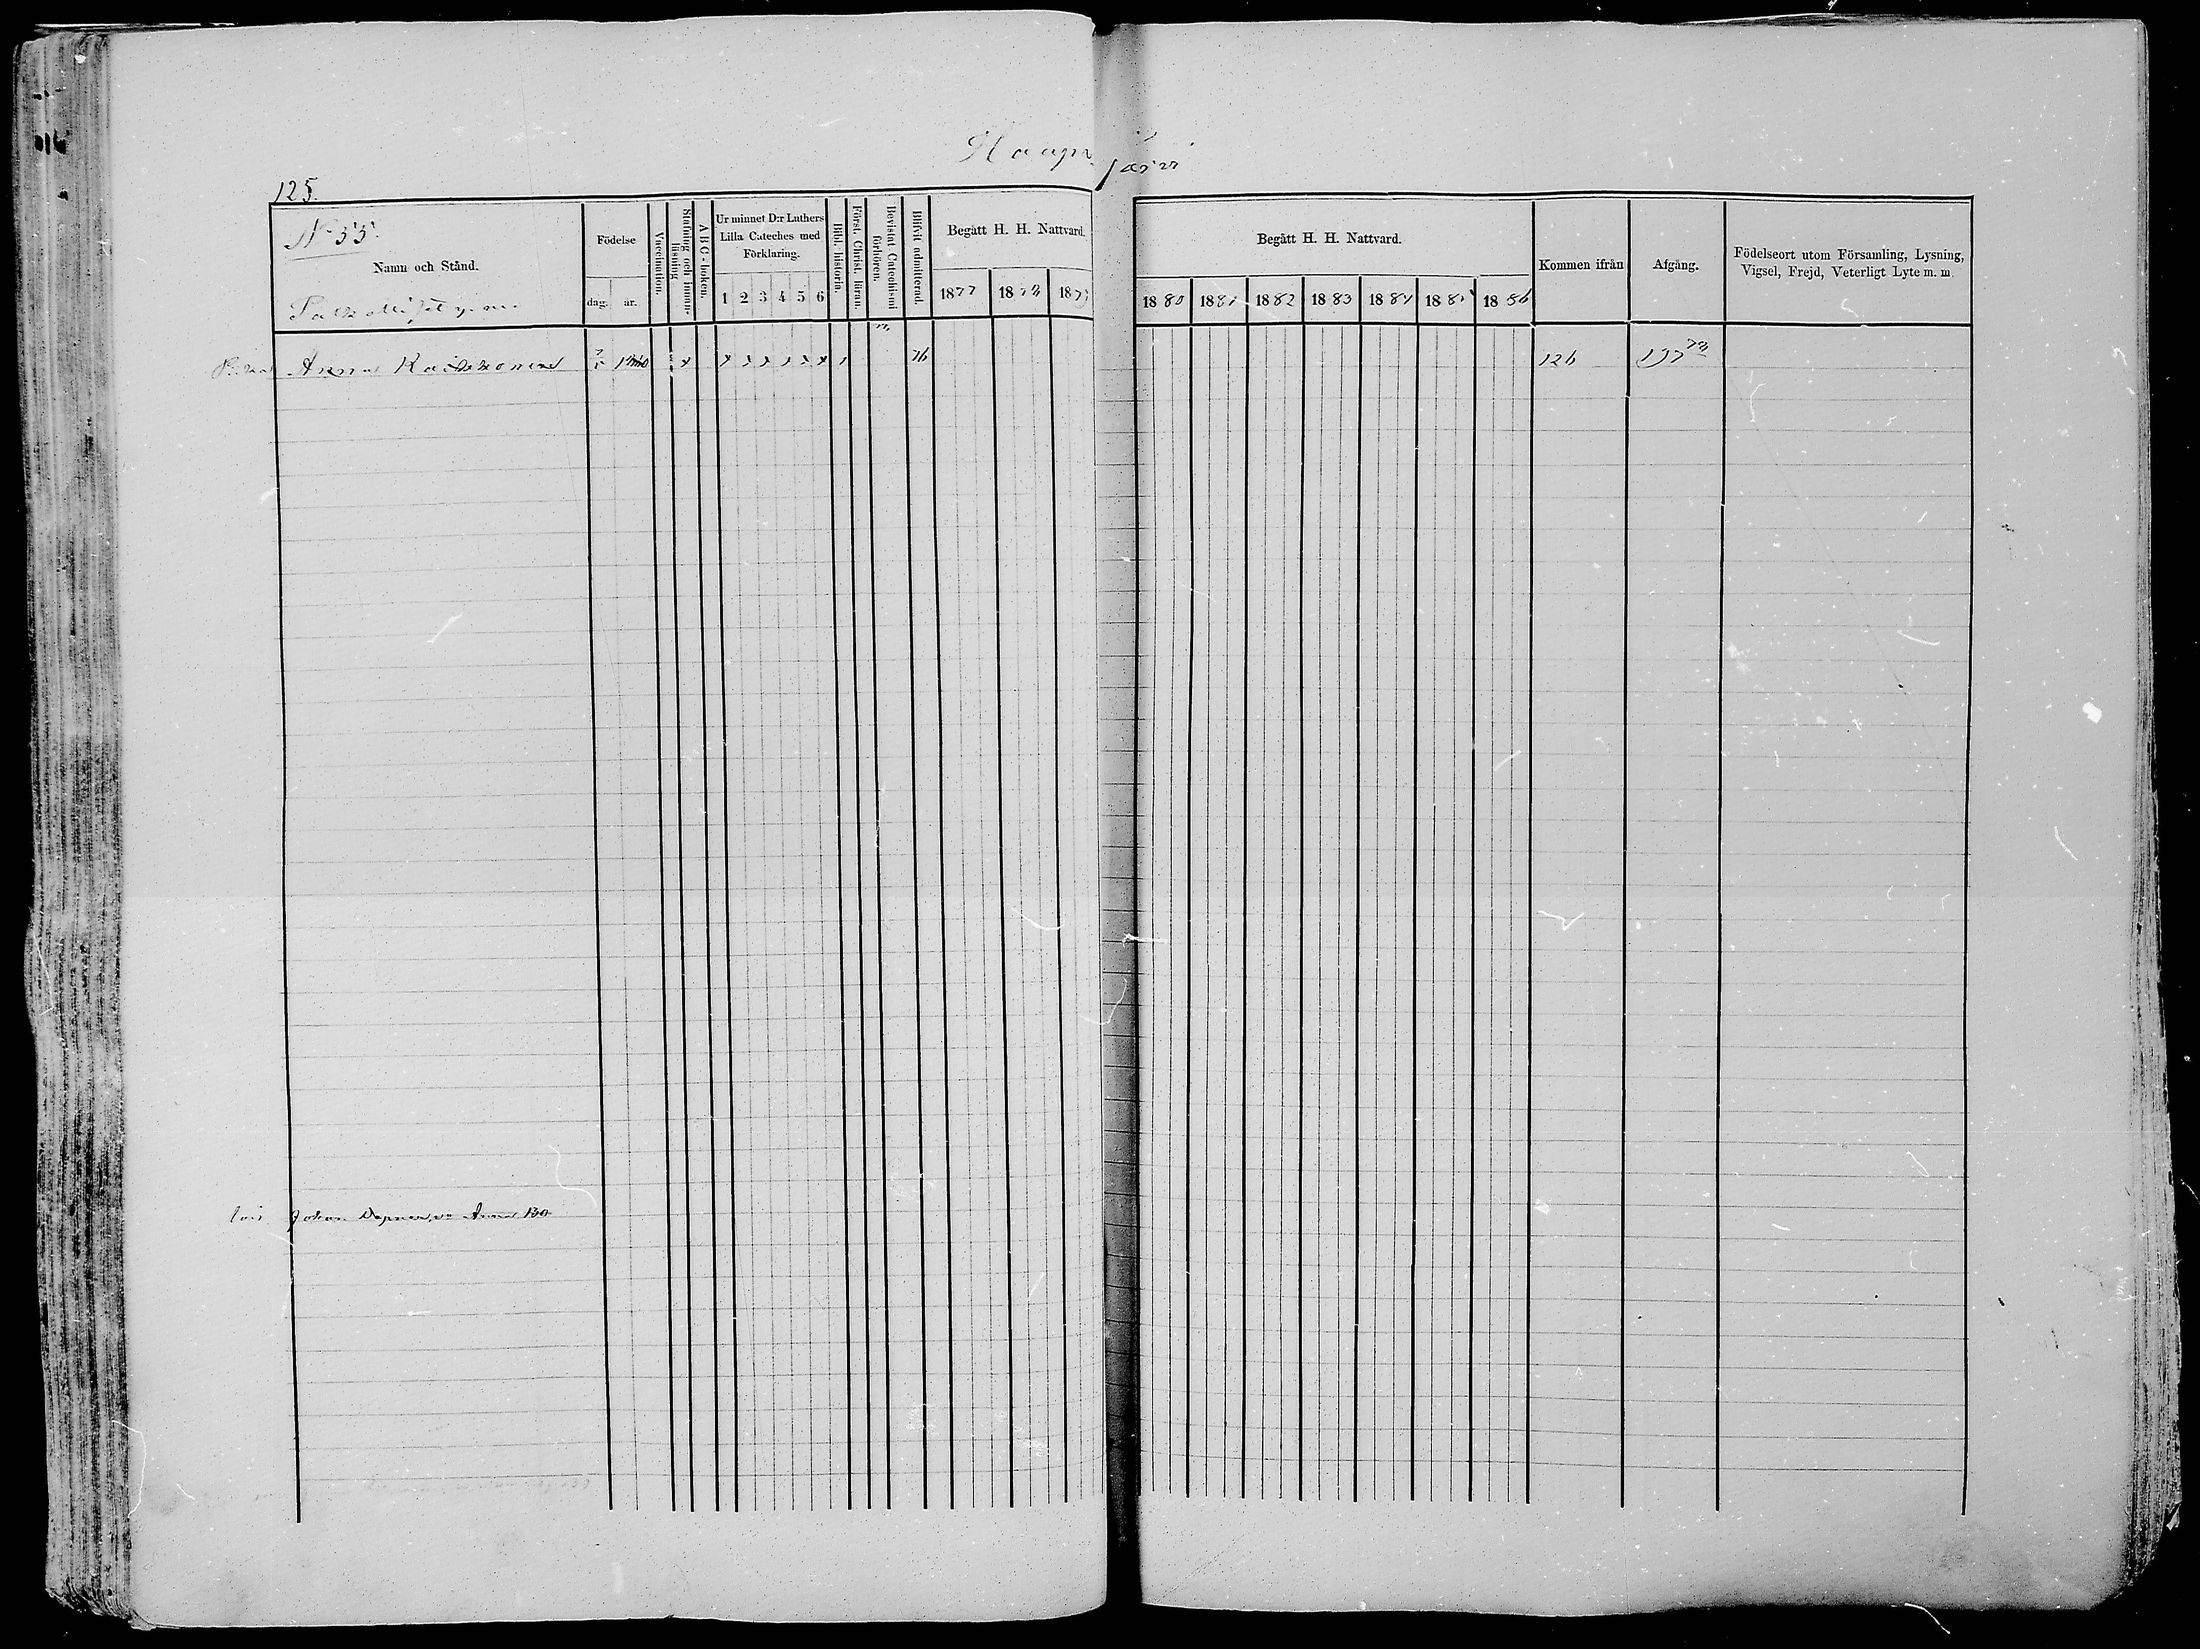 Haapajärvi
125.
N 55.
Namn och Stånd.
Födelse
dag. år.
Vaccination.
Stafning och innanläsning
A B C-boken.
Ur minnet D:r Luthers Lilla Cateches med Förklaring.
1 2 3 4 5 6
Bibl. historia.
Först. Christ. läran.
Bevistat Catechismi förhören.
Blifvit admitterad
Begått H. H. Nattvard.
1877 1878 1879
Begått H. H. Nattvard.
1880 1881 1882 1883 1884 1885 1886
Kommen ifrån
Afgång.
Födelseort utom Församling, Lysning, Vigsel, Frejd, Veterligt Lyte m. m.
Anna 76 126 197 78
Johan Anna 130